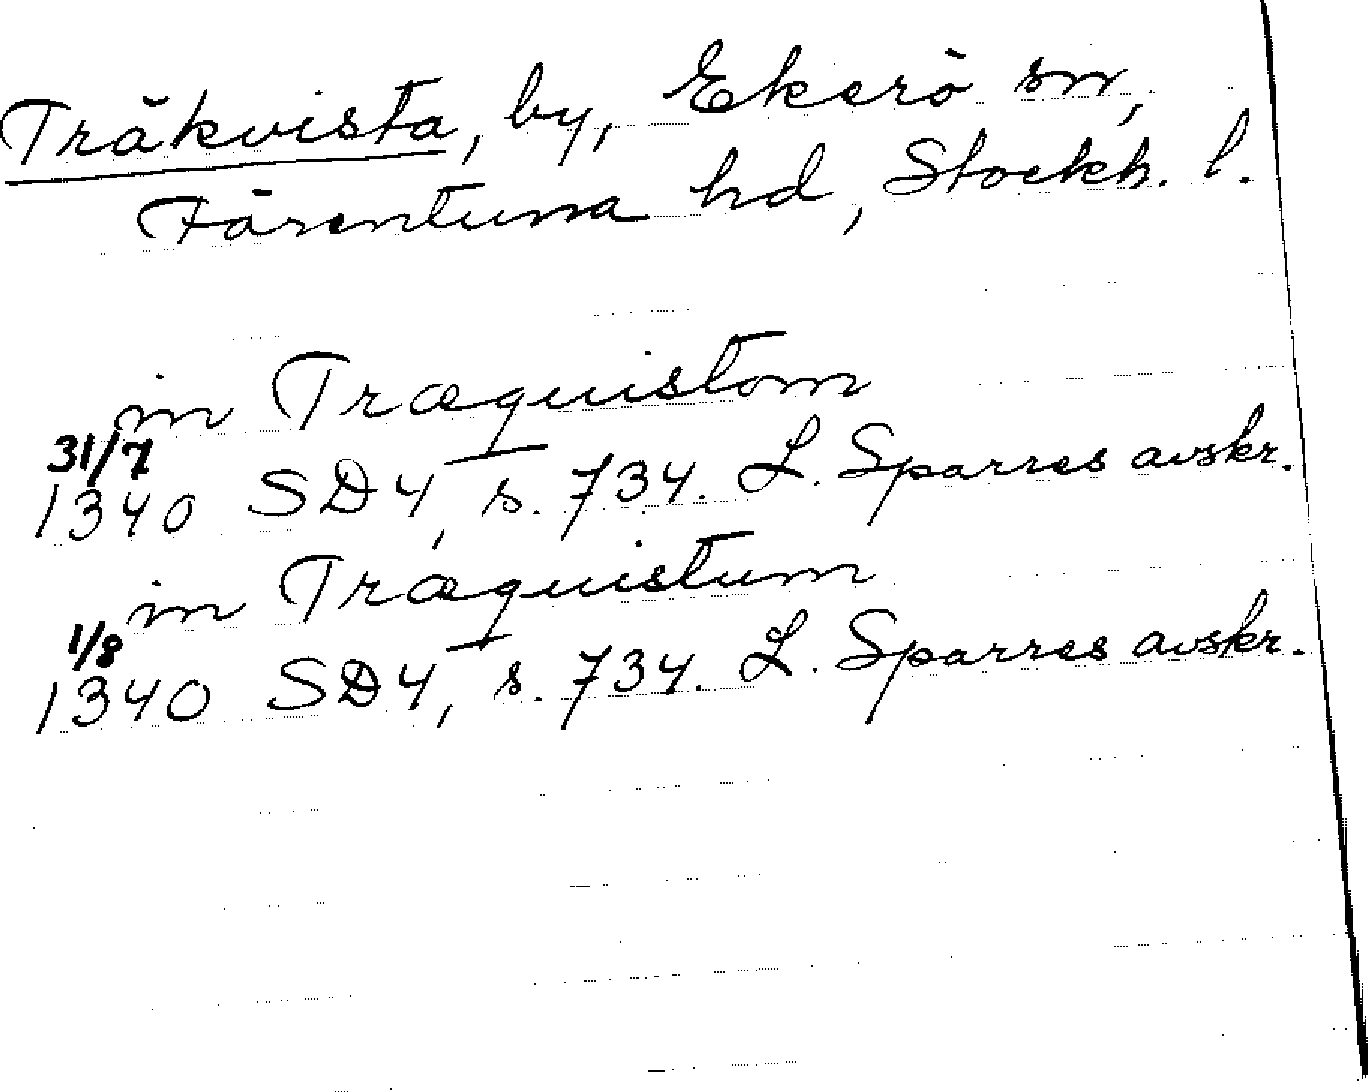 Träkvista, by, Ekerö sn,
Färentuna hd, Stockh. l.
in Træquistom
31/7
1340 SD4, s. 734. L. Sparres avskr.
in Træquistum
1/8
1340 SD4, s. 734. L. Sparres avskr.